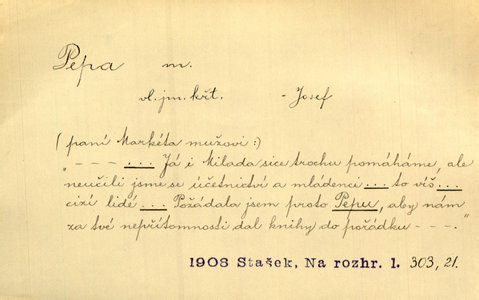 Pepa m.
vl. jm. křt. - Josef
(paní Markéta mužovi:)
"--- ... Já i Milada sice trochu pomáháme, ale
neučili jsme se účetnictví a mládenci ... to víš ...
cizí lidé ... Požádala jsem proto Pepu, aby nám
za tvé nepřítomnosti dal knihy do pořádku ---."
1908 Stašek, Na rozhr. 1. 303, 21.